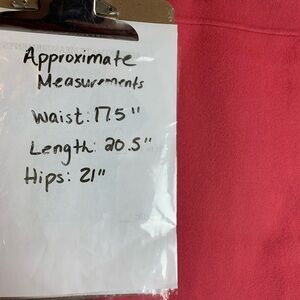 Approximate
Measurements
Waist: 17.5"
Length: 20.5"
Hips: 21"